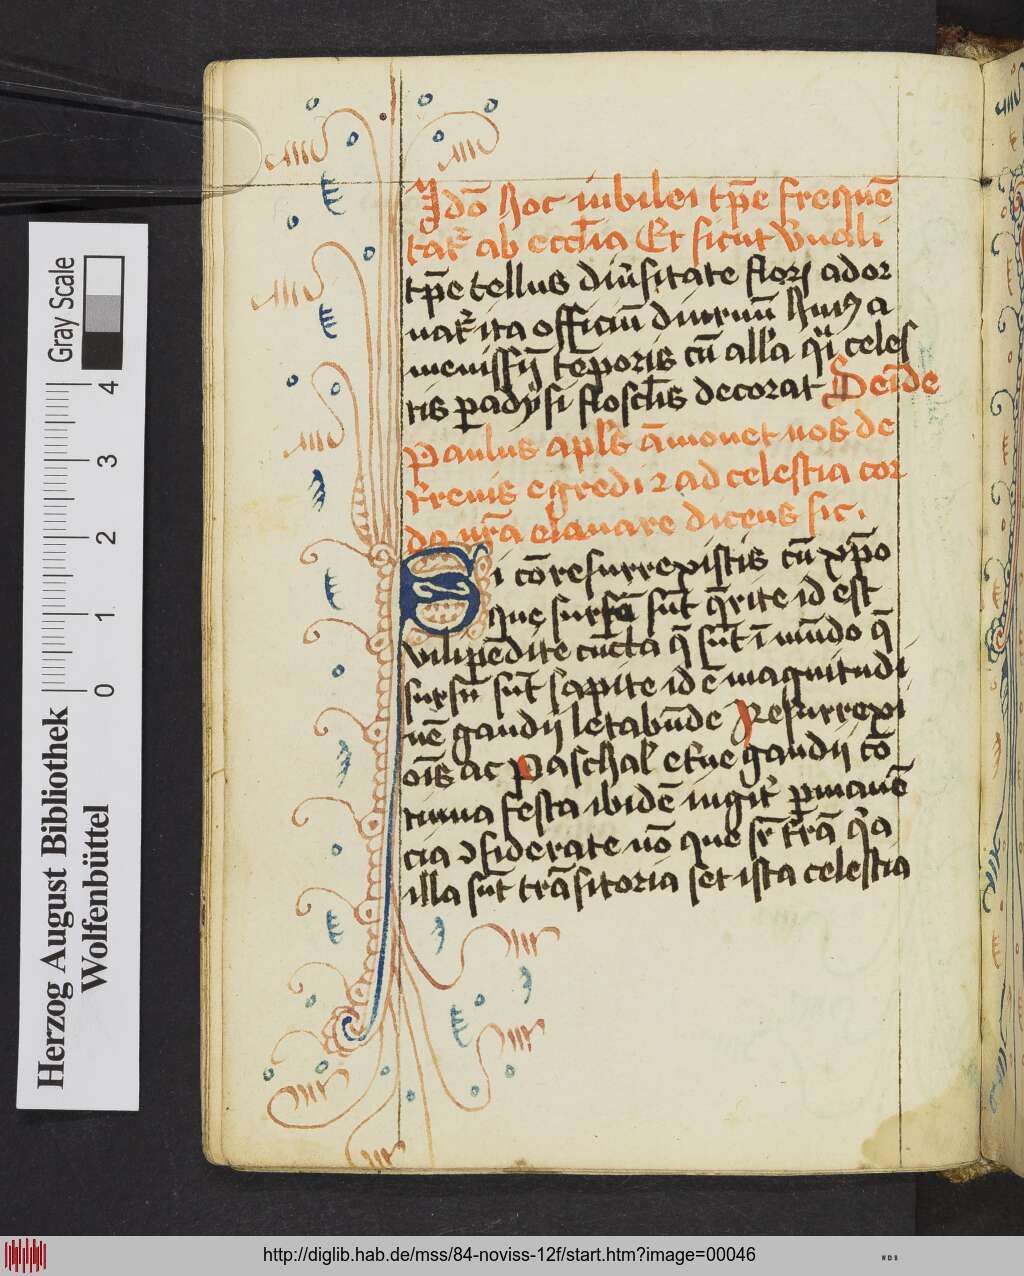 Idō hoc iubilei tp̄e frequē
tat᷑ ab eccl̄ia Et sicut Vnali
tp̄e tellus diu̅sitate floꝝ ador
nat᷑ ita officiū diurnū huiꝰ a
menissīj tēporis cū all'a qͥ celes
tis padysi floscl̄is decorat Deīde
Paulus apl̄s āmonet nos de
t᷑renis egredi ⁊ ad celestia cor
da nr̄a eleuare dicens sic.
Si cōresurrexistis cū xp̄o
que sursū sūt q̄rite id est
vilipēdite cūcta q̄ sūt ī mūdo q̄
sursū sūt sapite id ē magnitudi
nē gaudij letabūde Resurrexi
oīs ac Paschal' et ue gaudij cō
tinua festa ibidē iugit᷑ ꝑmanē
cia ↄsiderate nō que sr̄ t᷑rā q̄a
illa sūt trāsitoria set ista celestia
Herzog August Bibliothek
Wolfenbüttel
Gray Scale
0 1 2 3 4
http://diglib.hab.de/mss/84-noviss-12f/start.htm?image=00046